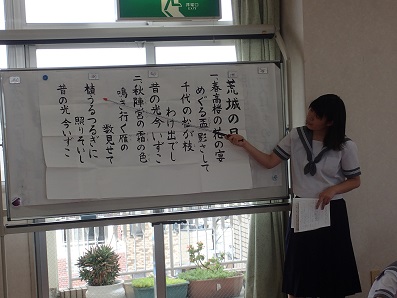 荒城の月
一、春高楼の花の宴
めぐる盃影さして
千代の松が枝
わけ出でし
昔の光今いずこ
二、秋陣営の霜の色
鳴き行く雁の
数見せて
植うるつるぎに
照りそいし
昔の光今いずこ